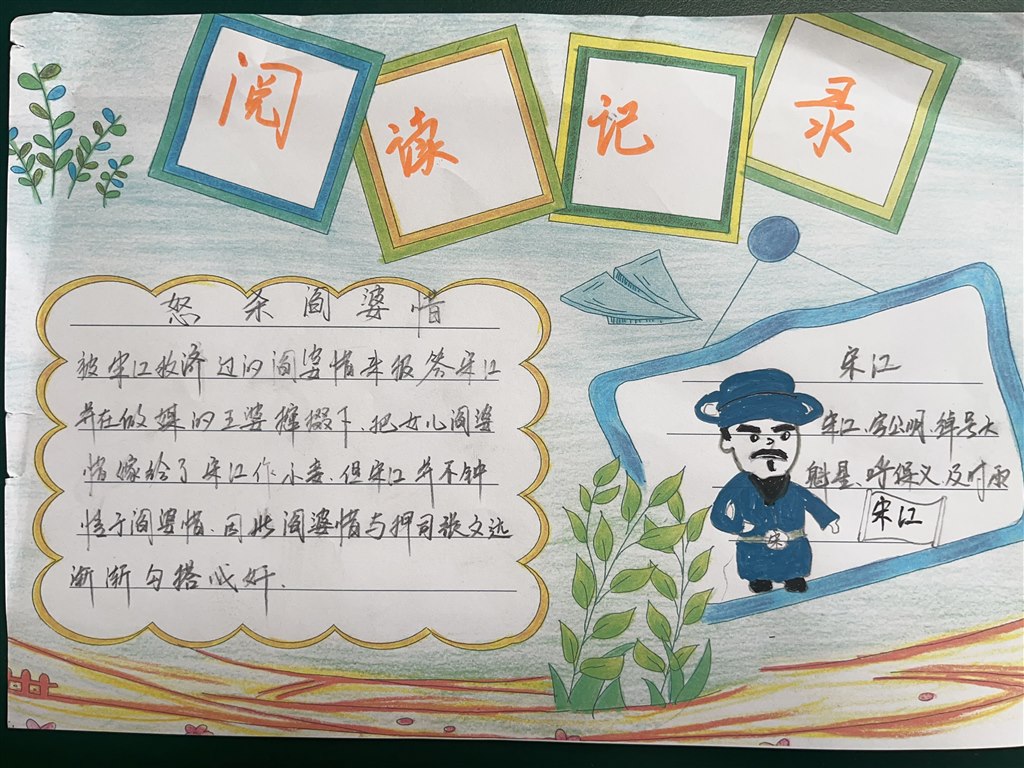 阅读记录
怒杀阎婆惜
被宋江救济过的阎婆惜来报答宋江
并在做媒的王婆撺掇下、把女儿阎婆
惜嫁给了宋江作小妾、但宋江并不钟
情于阎婆惜、因此阎婆惜与押司张文远
渐渐勾搭成奸、
宋江
宋江、字公明、绰号大
魁星、呼保义、及时雨
宋江
宋